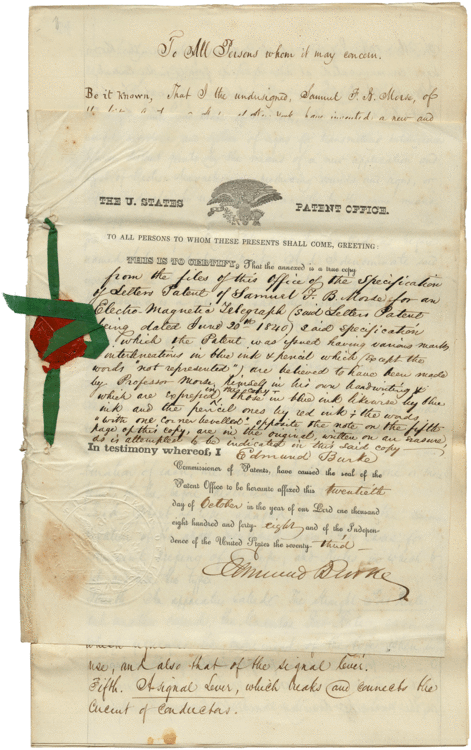 To All Persons whom it may concern.
Be it known, That I the undersigned, Samuel F. B. Morse, of
have invented a new and
THE U. STATES PATENT OFFICE.
TO ALL PERSONS TO WHOM THESE PRESENTS SHALL COME, GREETING:
THIS IS TO CERTIFY, That the annexed is a true copy
from the files of this Office of the Specification
of Letters Patent of Samuel F. B. Morse for an
Electro Magnetic Telegraph (said Letters Patent
being dated June 20th 1840) said Specification
which the Patent, was issued having various marks
interlineations in blue ink & pencil which (except the
words "not represented"), are believed to have been made
by Professor Morse himself in his own handwriting &
which are expressed in this copy, those in blue ink likewise by blue
ink and the pencil ones by red ink & the words
"with one corner bevelled" opposite the note on the fifth
page of this copy, are in the original, written on an erasure,
as is attempted to be indicated in this said copy
In testimony whereof, I Edmund Burke
Commissioner of Patents, have caused the seal of the
Patent Office to be hereunto affixed this twentieth
day of October in the year of our Lord one thousand
eight hundred and forty eight and of the Indepen-
dence of the United States the seventy third
Edmund Burke
use, and also that of the signal lever.
Fifth. A signal Lever, which breaks and connects the
Circuit of Conductors.